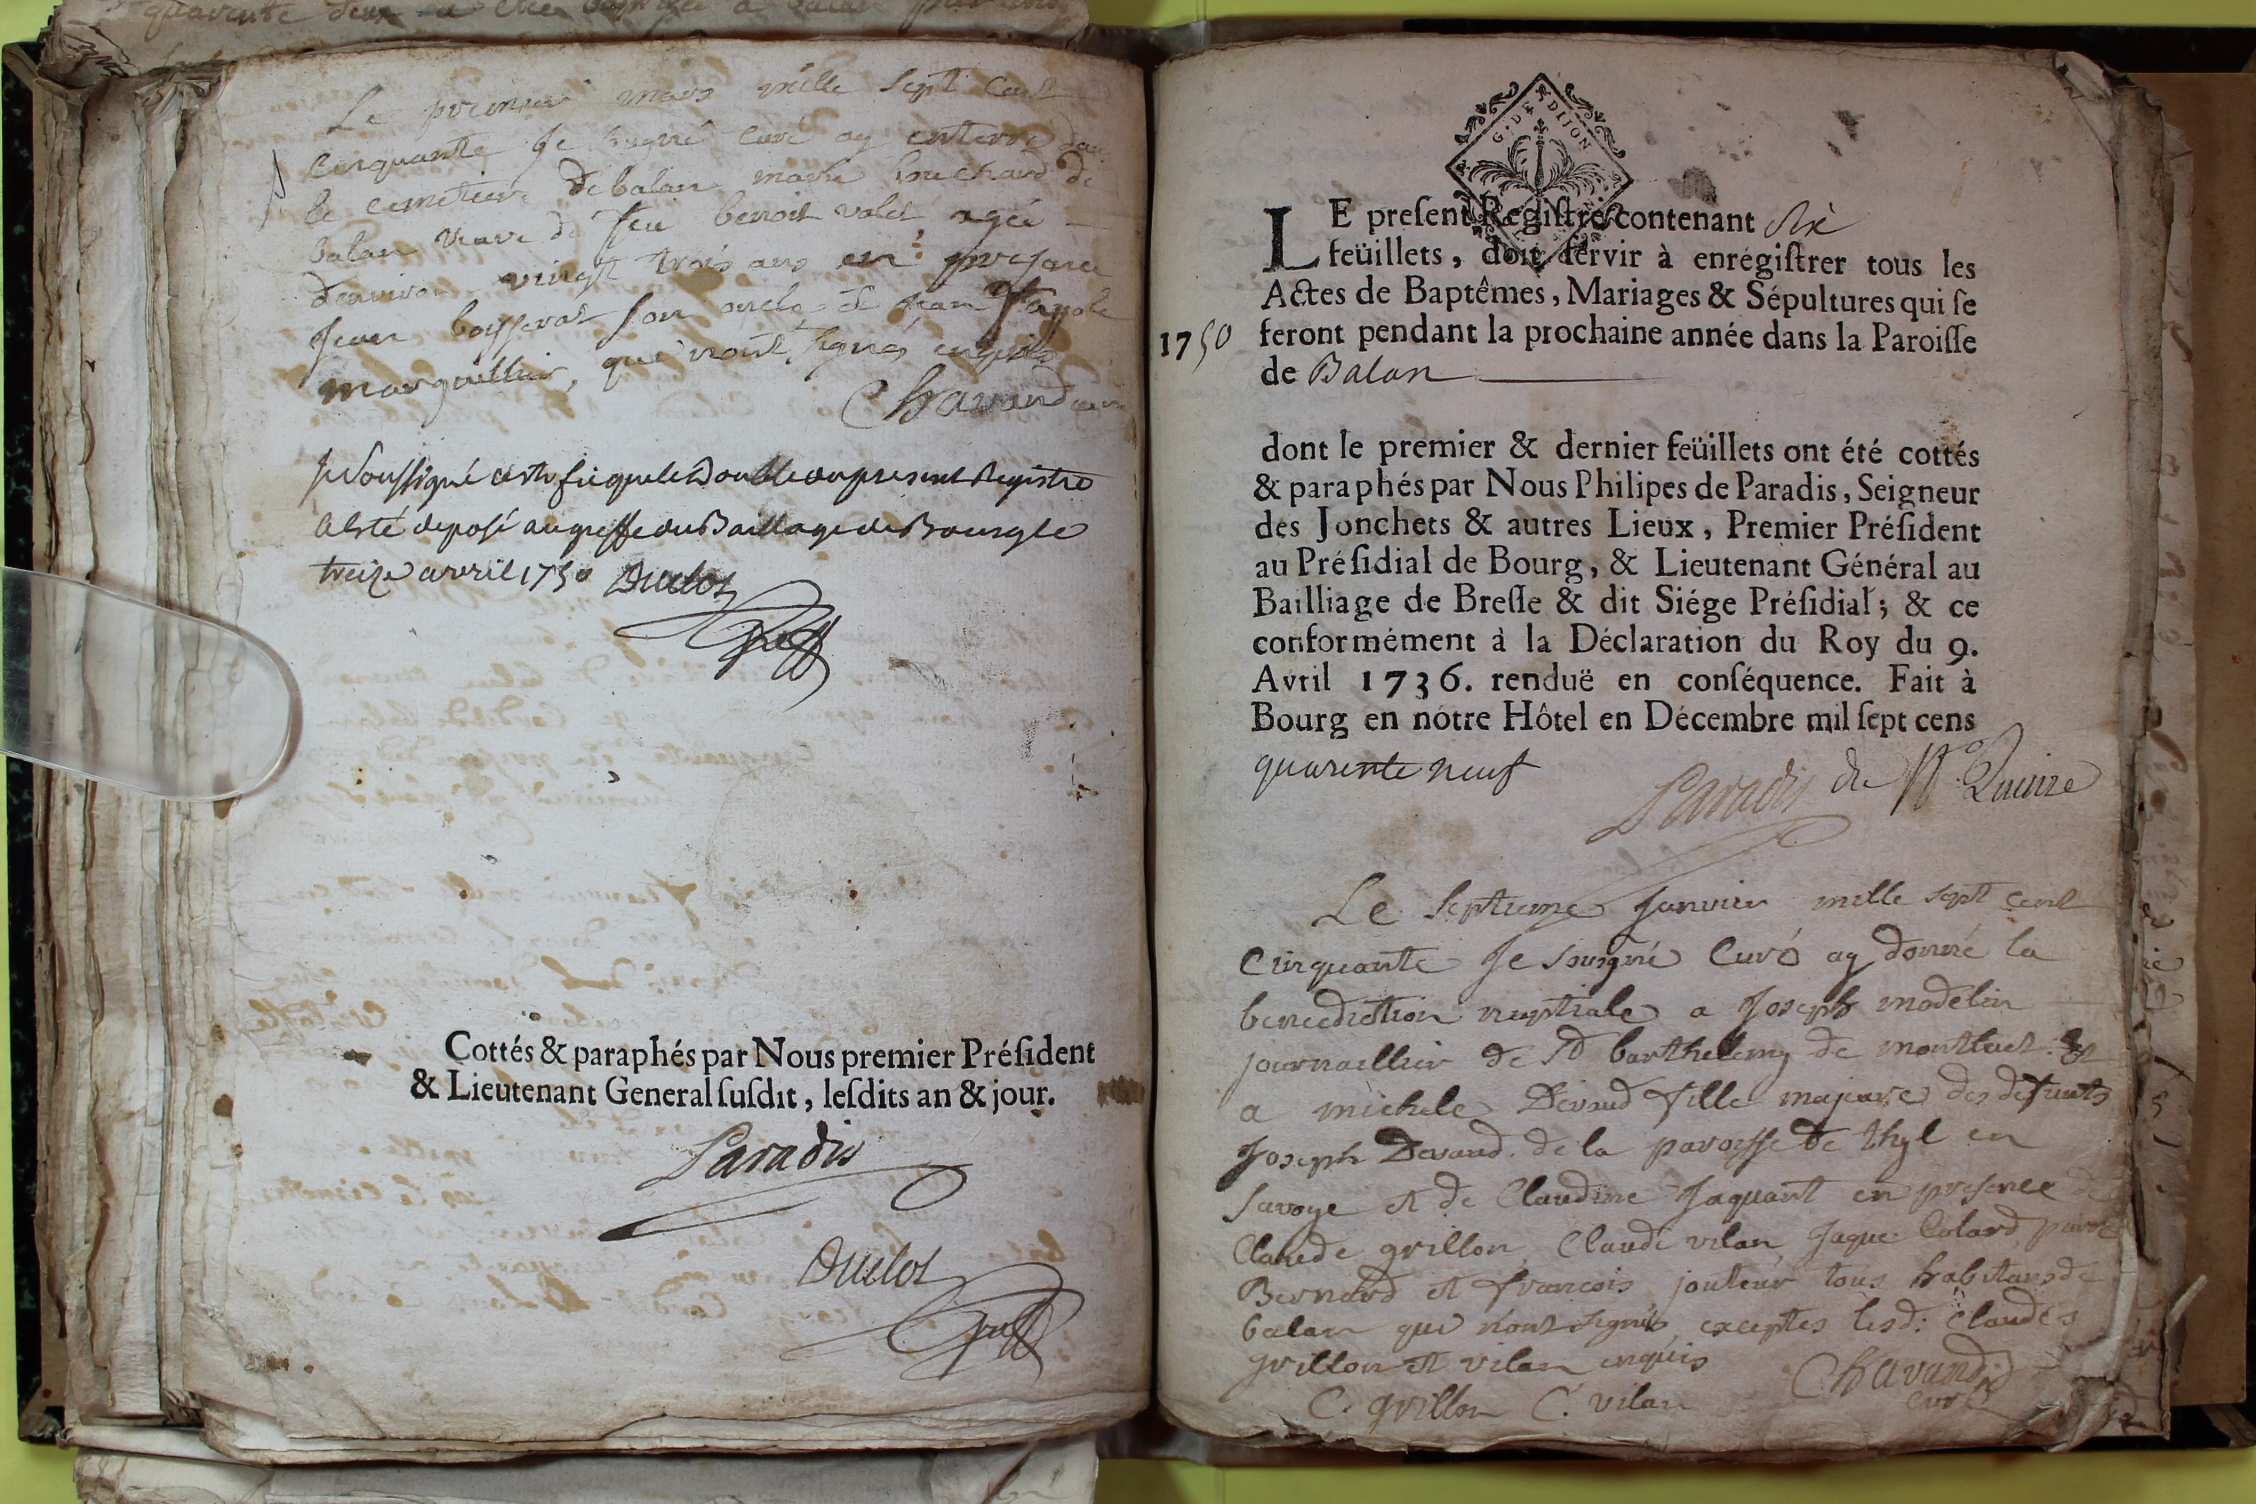 Le premier mars mille sept cent
cinquante Je sousigné curé ay enterré dans
le cimetiere de balan marie bruchard de
balan veuve de feu benoit valet agée
denviron vingt trois ans en presence
Jean boysserat son oncle et Jean
marguillier, qui n'ont signés enquis
Chavand curé
Je soussigné certifie que le Double du present Registre
a esté deposé au greffe du Baillage de Bourg le
treize avril 1750 Duclos
greff
Cottés & paraphés par Nous premier Préſident
& Lieutenant General ſuſdit, leſdits an & jour.
Paradis
Duclos
greff
G. DE DIJON
LE preſent Regiſtre contenant six
feüillets, doit ſervir à enrégiſtrer tous les
Actes de Baptêmes, Mariages & Sépultures qui ſe
1750 feront pendant la prochaine année dans la Paroiſſe
de Balan
dont le premier & dernier feüillets ont été cottés
& paraphés par Nous Philipes de Paradis, Seigneur
des Jonchets & autres Lieux, Premier Préſident
au Préſidial de Bourg, & Lieutenant Général au
Bailliage de Breſſe & dit Siége Préſidial; & ce
conformément à la Déclaration du Roy du 9.
Avril 1736. renduë en conſéquence. Fait à
Bourg en nôtre Hôtel en Décembre mil ſept cens
quarente neuf
Paradis
Le septieme Janvier mille sept cent
cinquante Je sousigné Curé ay donné la
benediction nuptiale a Joseph modelin
journaillier de St barthelemy de montluel et
a michele Devaud fille majeure des defunts
Joseph Devaud de la paroisse de thyl en
Savoye et de Claudine Jaquant en presence de
Claude grillon, Claude vilan Jaque Colard pierre
Bernard et françois jouteur tous habitans de
balan qui n'ont signés exceptes lesd: Claudes
grillon et vilan enquis Chavand
curé
C. grillon C. vilan